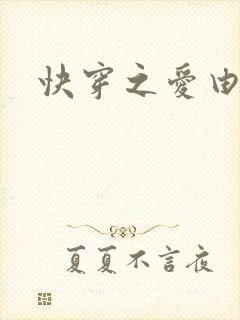 快穿之愛由
夏夏不言夜